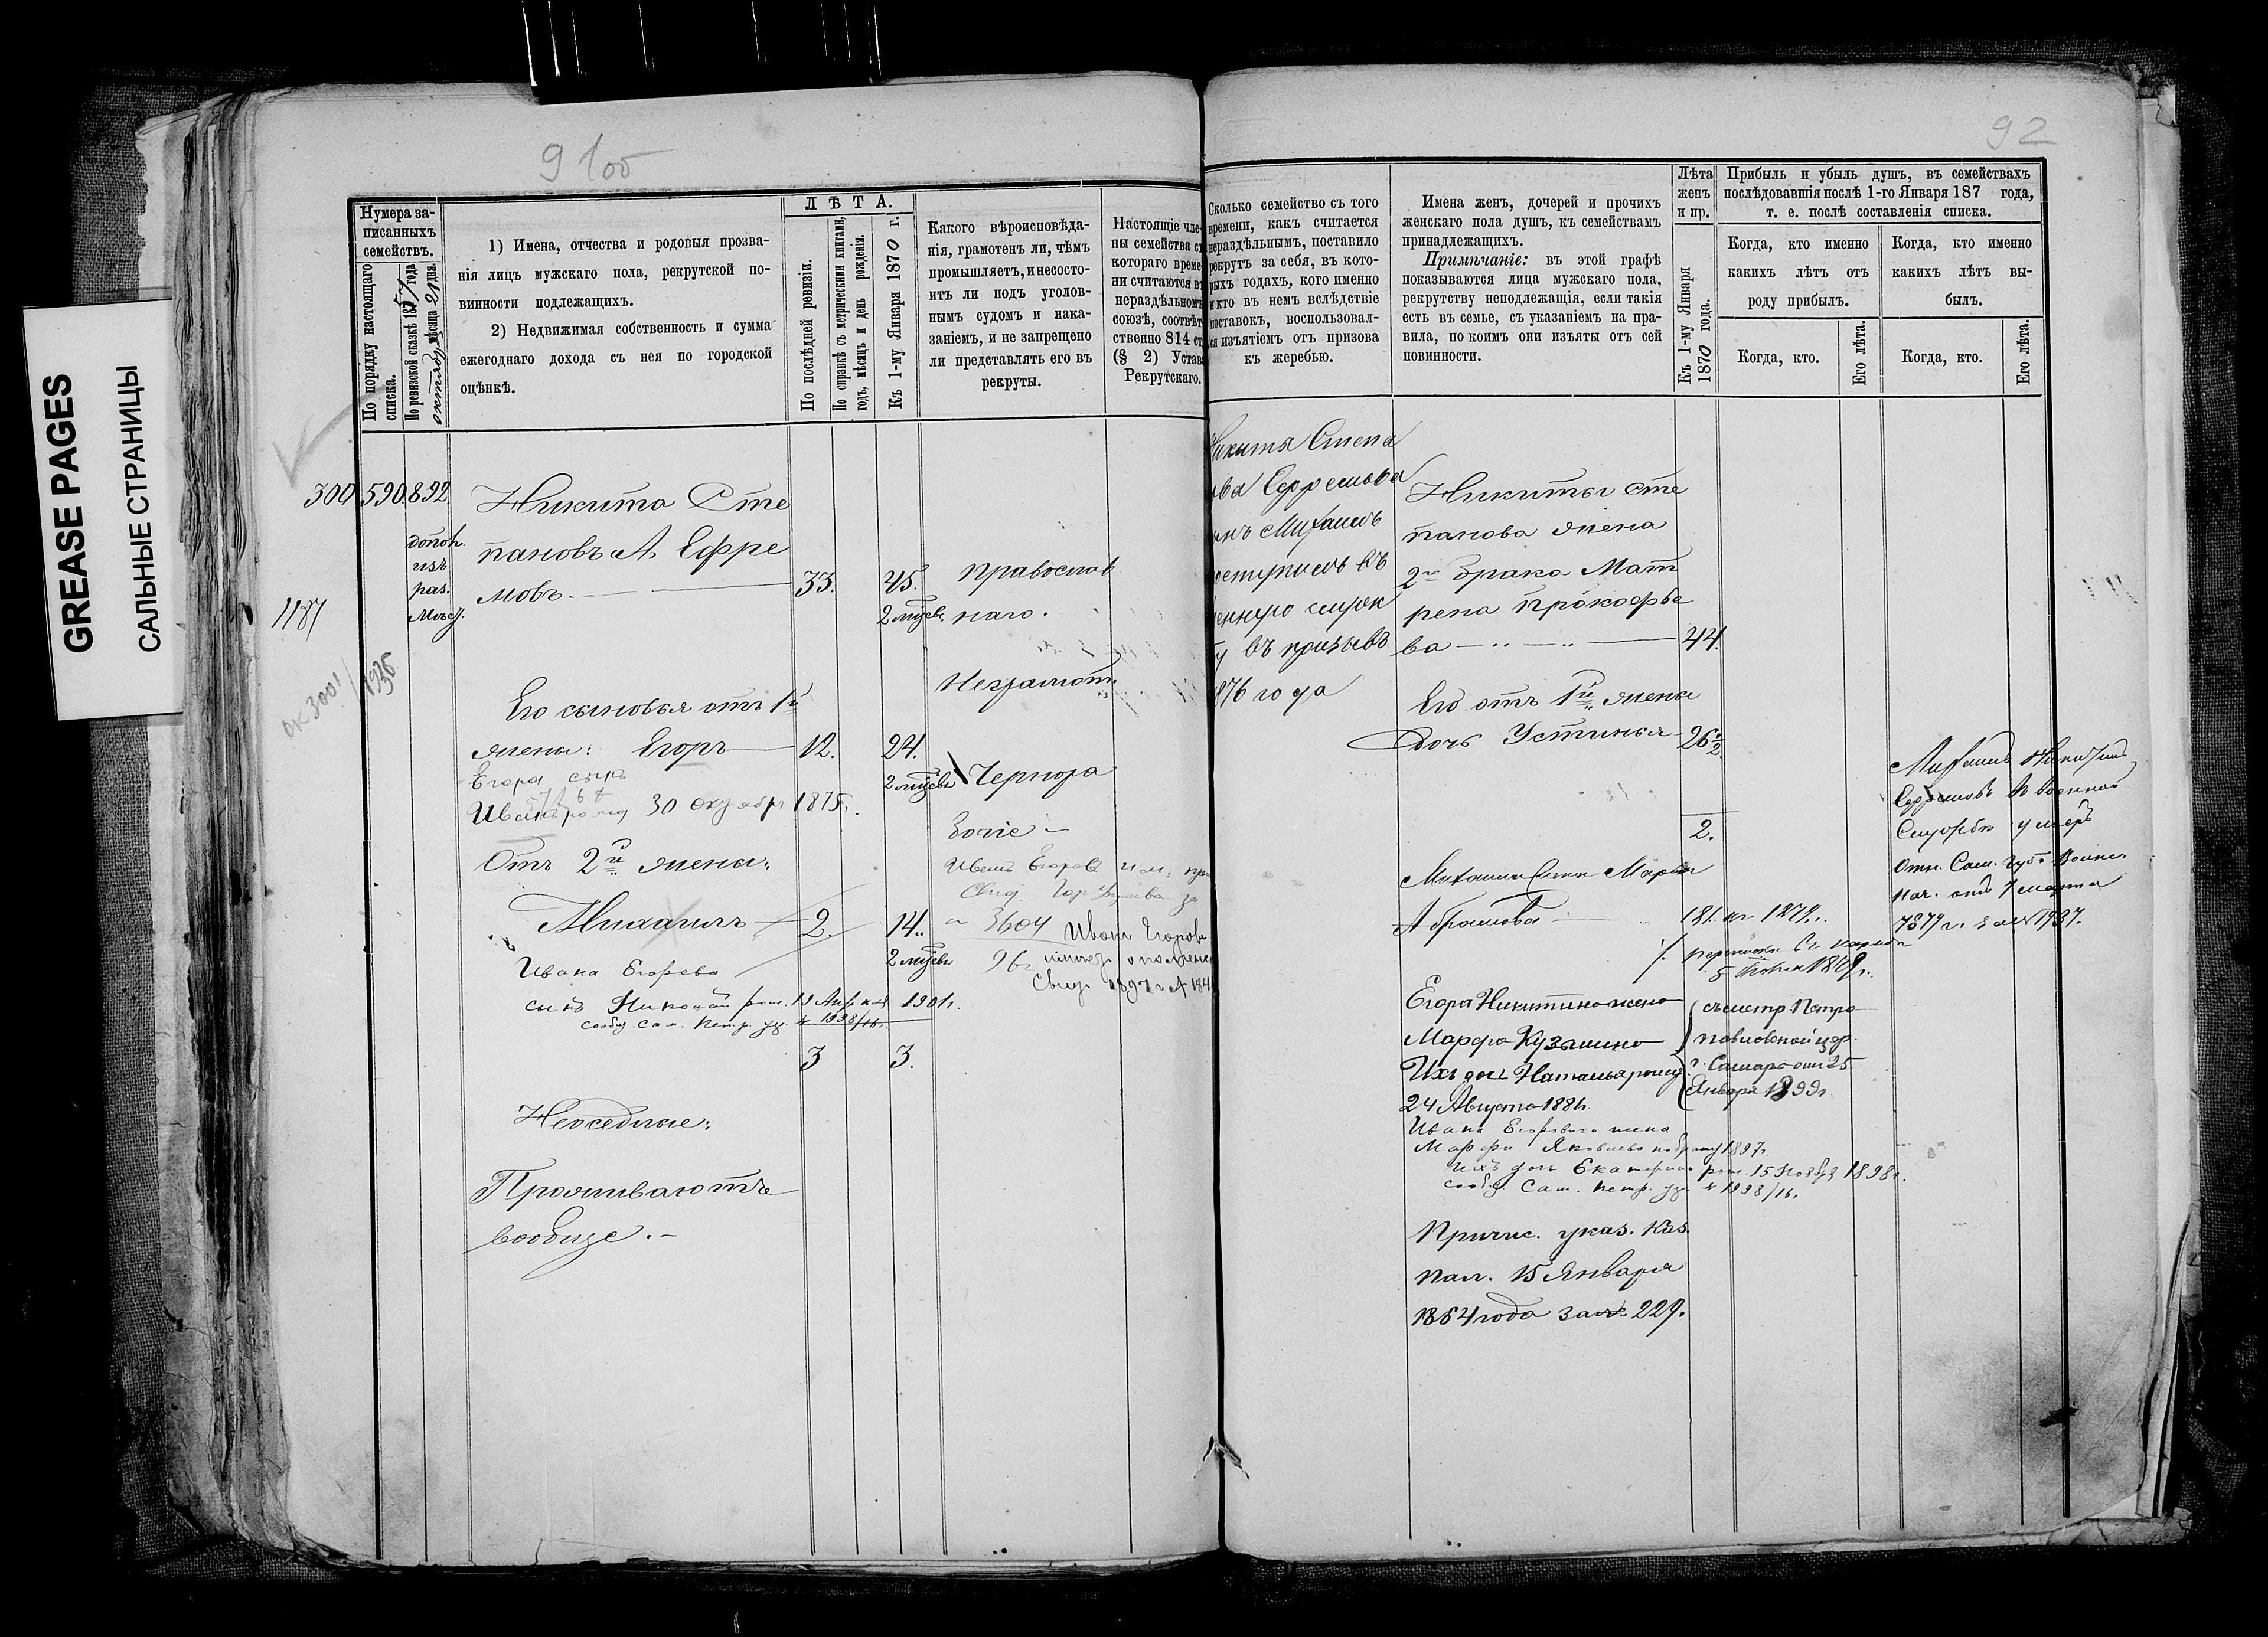 GREASE PAGES
САЛЬНЫЕ СТРАНИЦЫ
92
Нумера за-
писанныхъ
семействъ.
По порядку настоящаго
списка.
По ревизской сказкѣ 1857 года
октября мѣсяца 21 дня.
1) Имена, отчества и родовыя прозва-
нія лицъ мужскаго пола, рекрутской по-
винности подлежащихъ.
2) Недвижимая собственность и сумма
ежегоднаго дохода съ нея по городской
оцѣнкѣ.
ЛѢТА.
По послѣдней ревизіи.
По справкѣ съ метрическими книгами,
годъ, мѣсяцъ и день рожденія.
Къ 1-му Января 1870 г.
Какого вѣроисповѣда-
нія, грамотенъ ли, чѣмъ
промышляетъ, и несосто-
итъ ли подъ уголов-
нымъ судомъ и нака-
заніемъ, и не запрещено
ли представлять его въ
рекруты.
Настоящіе чле-
ны семейства съ
котораго време-
ни считаются въ
нераздѣльномъ
союзѣ, соотвѣт-
ственно 814 ст.
(§ 2) Устава
Рекрутскаго.
300 590 892
Никита Сте
пановъ Ефре
мовъ. 33. 45.
2 мѣсев.
православ
наго.
1181
Неграмотн
Его сыновья отъ 1й
жены: Егоръ 12. 24.
2 мѣсев
Чернора
бочіе
Егора сынъ
Иванъ род 30 октября 1875 г.
Отъ 2й жены:
Михаилъ 2. 14.
2 мѣсев
3604
Иванъ Егоровъ
Ивана Егорова
сынъ Николай рож. 19 Апрѣля 1901 г.
сообщ. Сам. Петр. № 1998/16.
3 3.
Неоседлые:
Проживаютъ
вообще.
Сколько семейство съ того
времени, какъ считается
нераздѣльнымъ, поставило
рекрутъ за себя, въ кото-
рыхъ годахъ, кого именно
и кто въ немъ вслѣдствіе
поставокъ, воспользовал-
ся изъятіемъ отъ призова
къ жеребью.
Имена женъ, дочерей и прочихъ
женскаго пола душъ, къ семействамъ
принадлежащихъ.
Примѣчаніе: въ этой графѣ
показываются лица мужскаго пола,
рекрутству неподлежащія, если такія
есть въ семьѣ, съ указаніемъ на пра-
вила, по коимъ они изъяты отъ сей
повинности.
Лѣта
женъ
и пр.
Къ 1-му Января
1870 года.
Прибыль и убыль душъ, въ семействахъ
послѣдовавшія послѣ 1-го Января 187 года,
т. е. послѣ составленія списка.
Когда, кто именно
какихъ лѣтъ отъ
роду прибылъ.
Когда, кто именно
какихъ лѣтъ вы-
былъ.
Когда, кто.
Его лѣта.
Когда, кто.
Его лѣта.
Никита Степа
нова Ефремова
сынъ Михаилъ
поступилъ въ
военную служ
бу въ призывъ
1876 года
Никиты Сте
панова жена
2го брака Мат
рена Прокофье
ва 44.
Его отъ 1й жены
дочь Устинья 26½
2.
Михаила жена Марья
Абрамова
Михаилъ Никитинъ
Ефремовъ въ военной
Службѣ умеръ
Отн. Сам. Губ. Воинск.
Нач. отъ 7 марта
1879 г. за № 1937.
Егора Никитина жена
Марфа Кузьмина
Ихъ доч Наталья рожд
24 Августа 1881 г.
съ метр Петро
павловской цер.
г. Самары отъ 25
Января 1899 г.
Ивана Егорова жена
Марфа Яковлева по браку 1897 г.
Ихъ дочь Екатерина рож. 15 Ноября 1898 г.
сообщ. Сам. Петр. № 1998/16.
Причис. указ. Каз.
Пал. 15 Января
1864 года за № 229.